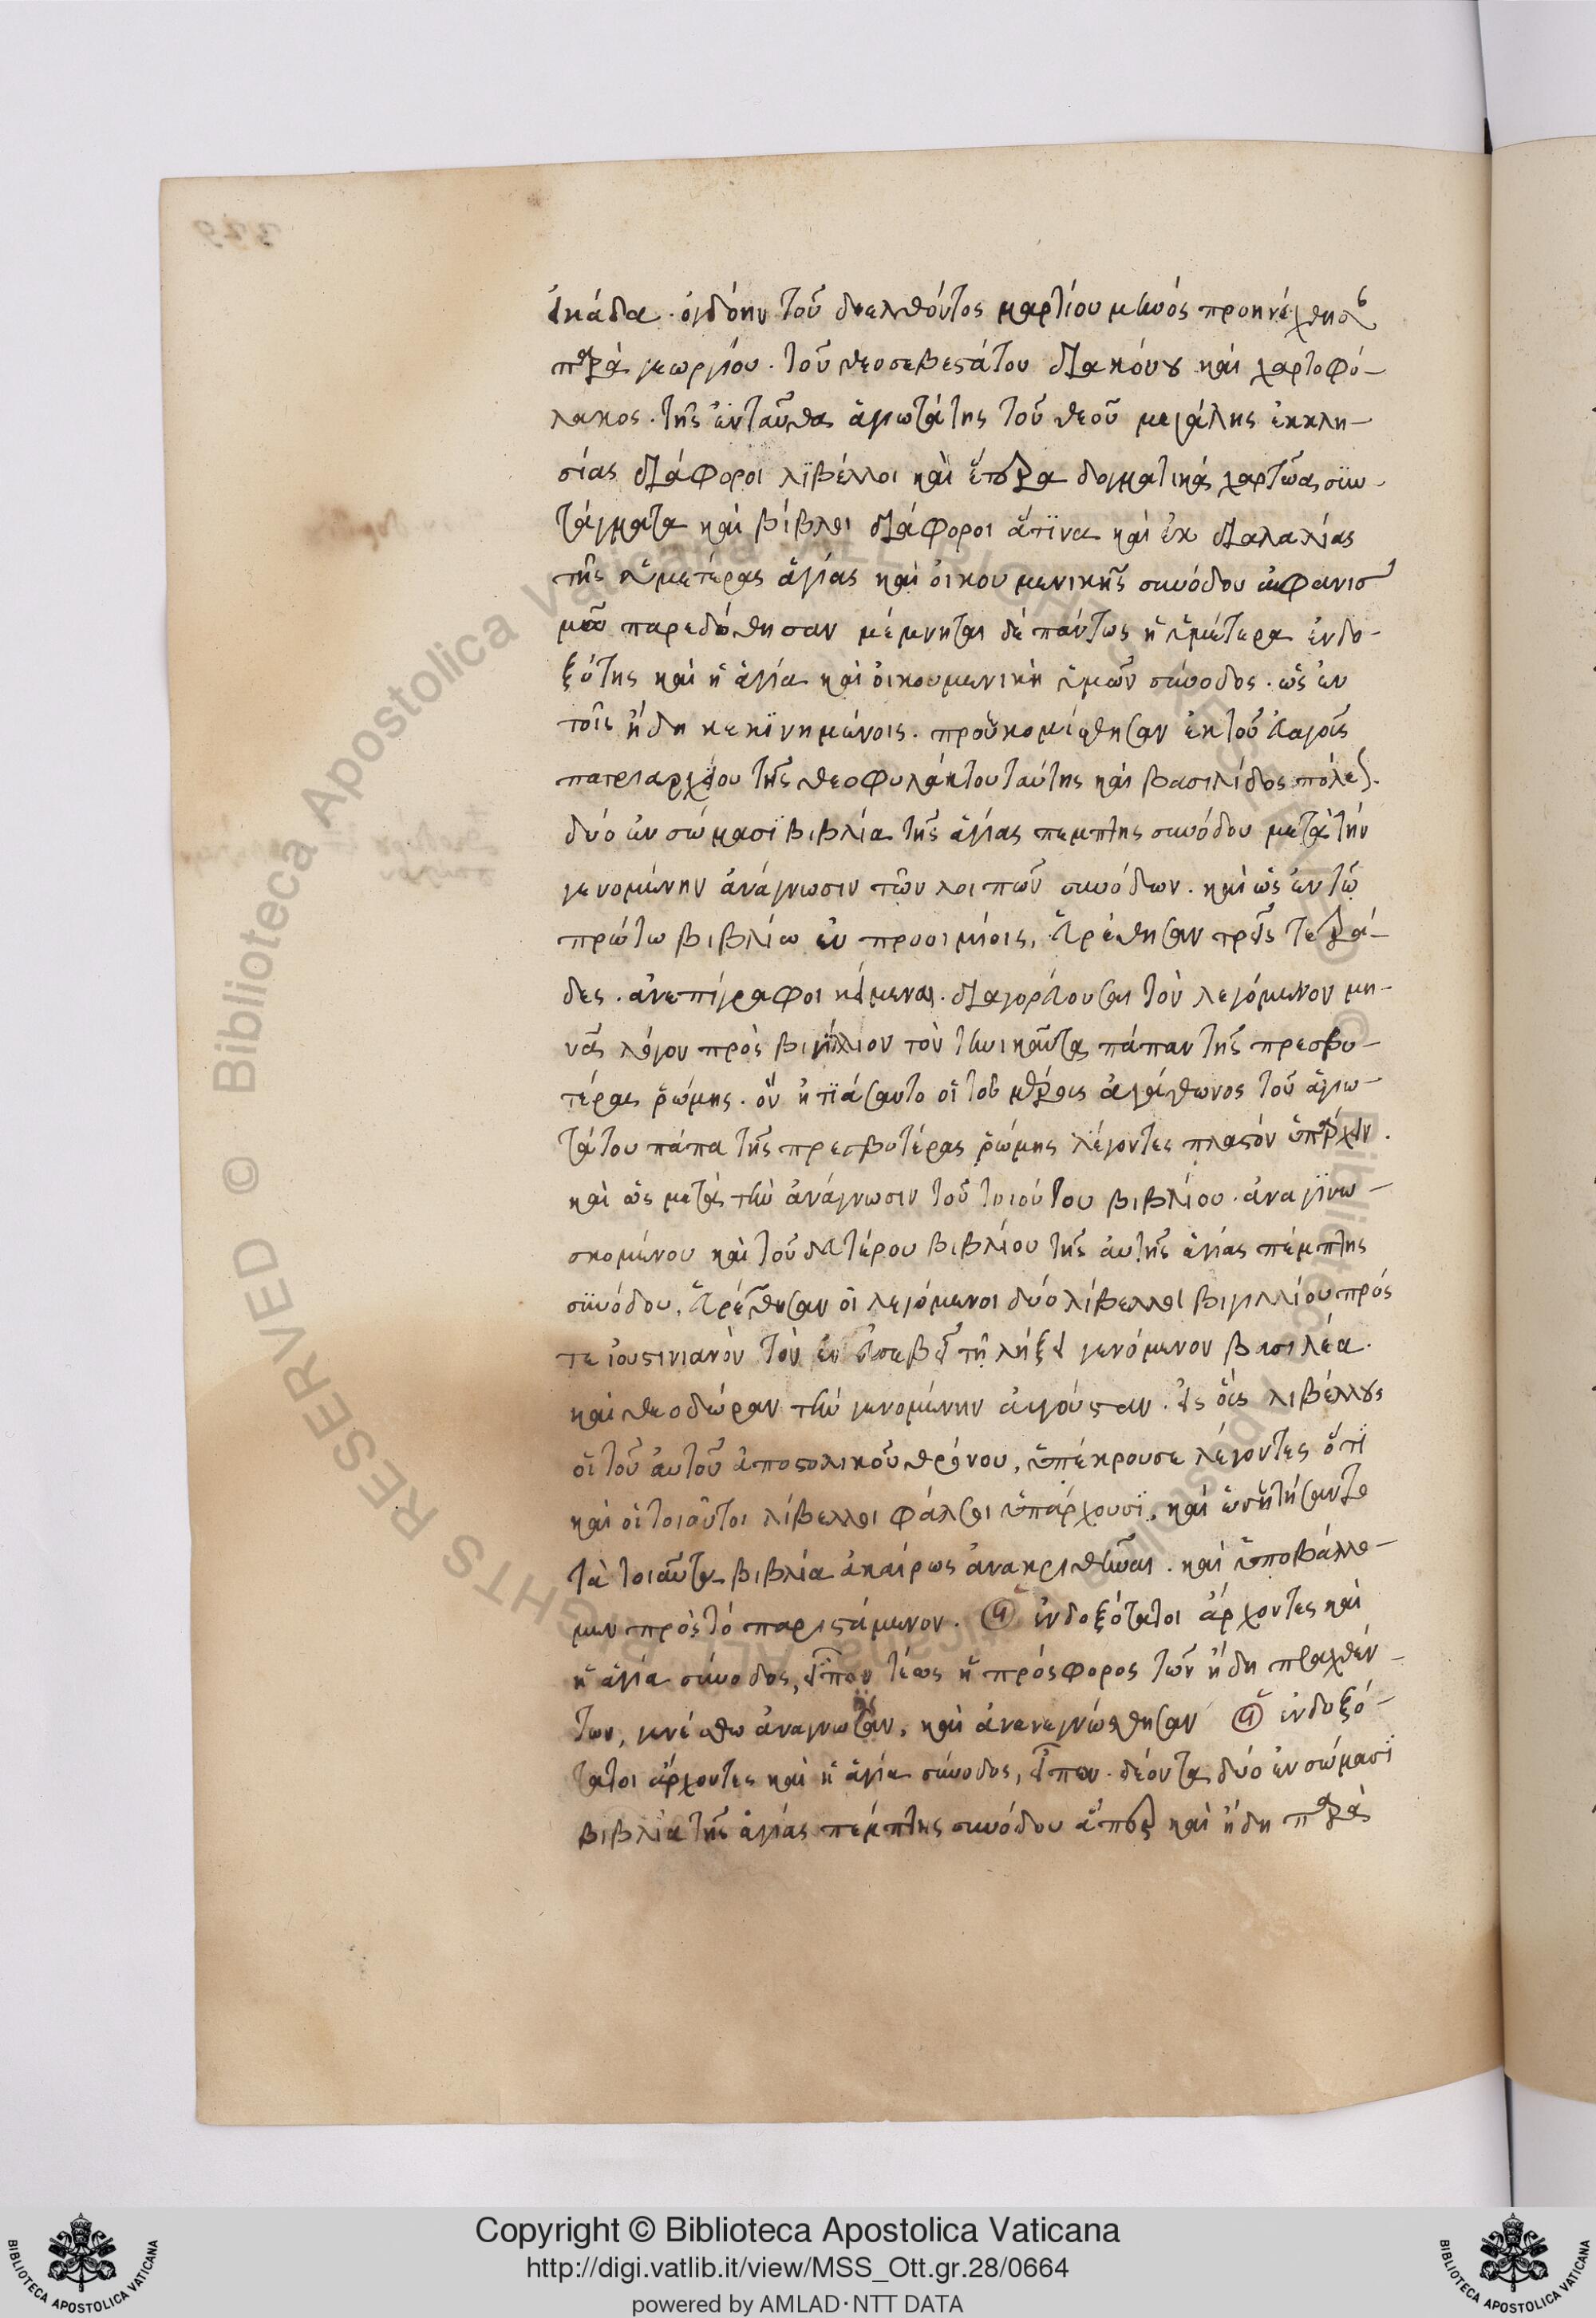 εἰκάδα · ὀγδόην τοῦ διελθόντος μαρτίου μηνός προηνέχθησ
παρὰ γεωργίου · τοῦ θεοσεβεστάτου διακόνου καὶ χαρτοφύ-
λακος · τῆς ἐνταῦθα ἁγιωτάτης τοῦ θεοῦ μεγάλης ἐκκλη-
σίας διάφοροι λϊβέλλοι καὶ ἕτερα δογματικὰ χαρτῶα συν-
τάγματα καὶ βίβλοι διάφοροι ἅτϊνα καὶ ἐκ διαλαλίας
τῆς ὑμετέρας ἁγίας καὶ οἰκουμενικῆς συνόδου ἀφανισ
μῶ παρεδόθησαν μέμνηται δὲ πάντως ἡ ὑμέτερα ἐνδο-
ξότης καὶ ἡ ἁγία καὶ οἰκουμενικὴ ὑμῶν σύνοδος · ὡς ἐν
τοῖς ἤδη κεκϊνημένοις · προὐκομίσθησαν ἐκ τοῦ εὐαγοῦς
πατριαρχείου τῆς θεοφυλάκτου ταύτης καὶ βασιλίδος πόλεως.
δύο ἐν σώμασϊ βιβλία τῆς ἁγίας πέμπτης συνόδου μετὰ τὴν
γενομένην ἀνάγνωσιν τῶν λοιπῶν συνόδων · καὶ ὡς ἐν τῷ
πρώτω βιβλίω ἐν προοιμίοις, εὑρέθησαν τρεῖς τετρά-
δες · ἀνεπίγραφοι κείμεναι · διαγορεύουσαι τὸν λεγόμενον μη-
νᾶς λόγον πρὸς βιγίλλιον τὸν τηνικαῦτα πάπαν τῆς πρεσβυ-
τέρας ῥώμης · ὃν ἠτϊάσαντο οἱ τοῦ μέρους ἀγάθωνος τοῦ ἁγιω-
τάτου πάπα τῆς πρεσβυτέρας ῥώμης λέγοντες πλαστόν ὑπάρχειν.
καὶ ὡς μετὰ τὴν ἀνάγνωσιν τοῦ τοιούτου βιβλίου · ἀναγϊνω-
σκομένου καὶ τοῦ δευτέρου βιβλίου τῆς αὐτῆς ἁγίας πέμπτης
συνόδου, εὑρέθησαν οἱ λεγόμενοι δύο λίβελλοι βιγιλλίου πρός
τε ἰουστινιανὸν τὸν ἐν εὐσεβεῖ τῇ λήξει γενόμενον βασιλέα.
καὶ θεοδώραν τὴν γενομένην αὐγούσταν · εἰς οὓς λιβέλλους
οἱ τοῦ αὐτοῦ ἀποστολικοῦ θρόνου, ὑπέκρουσε λέγοντες ὅτϊ
καὶ οἱ τοιοῦτοι λίβελλοι φάλσοι ὑπάρχουσϊ, καὶ ἐζήτησαν τε
τὰ τοιαῦτα βιβλία ἀκαίρως ἀνακριθῆναι · καὶ ὑποβάλλο-
μεν πρὸς τό παριστάμενον · οἱ ἐνδοξότατοι ἄρχοντες καὶ
ἡ ἁγία σύνοδος, εἶπον τέως ἡ πρόσφορος τῶν ἤδη πραχθέν-
των, γενέσθω ἀναγνωσις, καὶ ἀνεγνώσθησαν οἱ ἐνδοξό-
τατοι ἄρχοντες καὶ ἡ ἁγία σύνοδος, εἶπον · δέοντα δύο ἐν σώμασϊ
βιβλία τῆς ἁγίας πέμπτης συνόδου ἅπερ καὶ ἤδη παρὰ
Copyright © Biblioteca Apostolica Vaticana
http://digi.vatlib.it/view/MSS_Ott.gr.28/0664
powered by AMLAD·NTT DATA